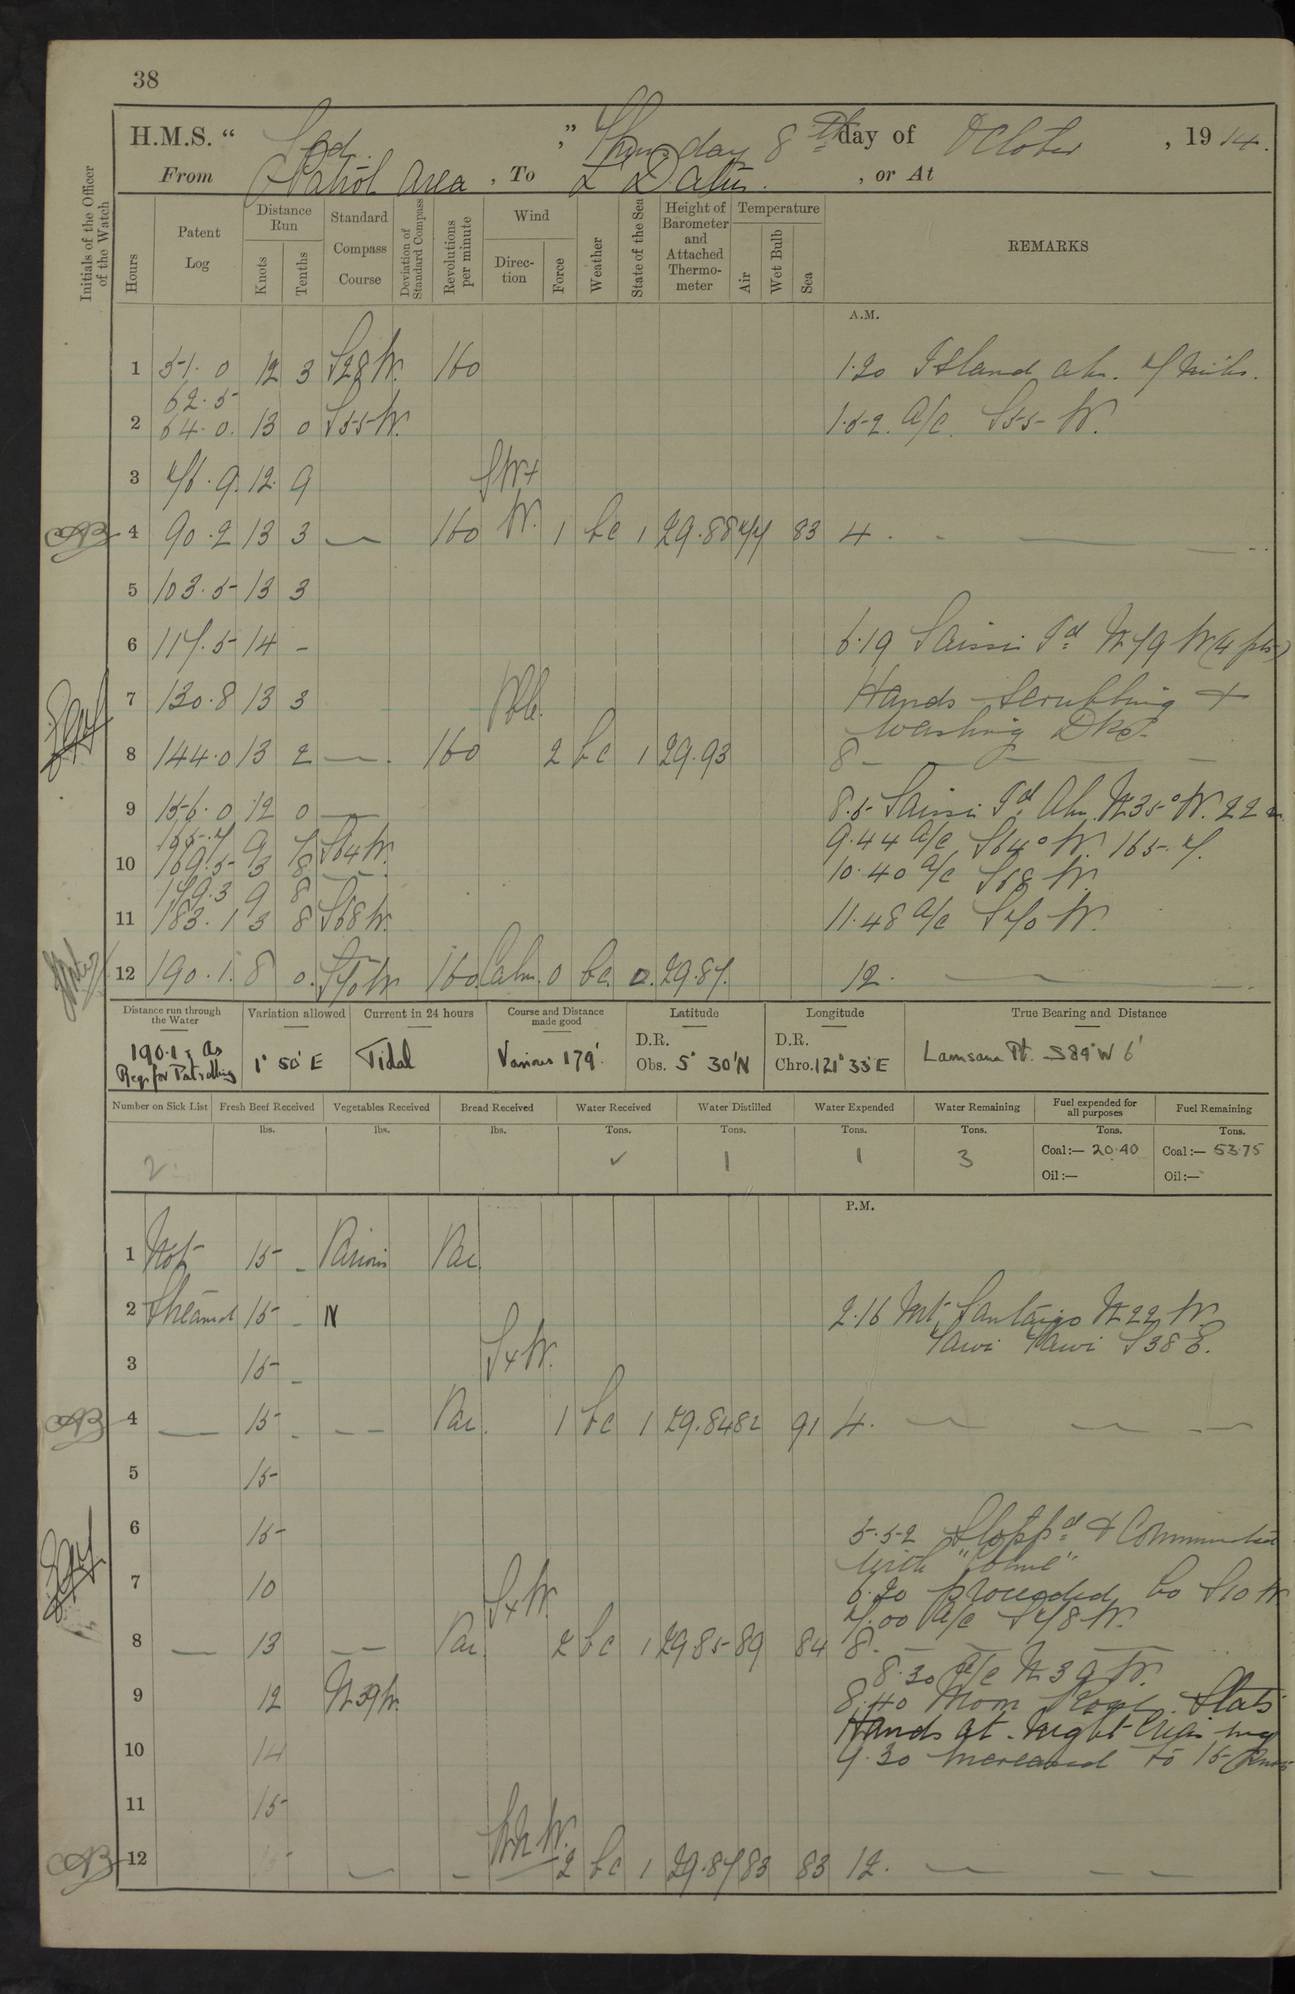 38
H.M.S. " " Thursday 8th day of October , 1914.
From Patrol Area , To Datu. , or At
Initials of the Officer of the Watch
Hours
Patent Log
Distance Run
Knots
Tenths
Standard Compass Course
Deviation of Standard Compass
Revolutions per minute
Wind
Direction
Force
Weather
State of the Sea
Height of Barometer and Attached Thermometer
Temperature
Air
Wet Bulb
Sea
REMARKS
A.M.
1 51.0 12 3 S28W. 160 1.20 Island abm. 7 miles.
62.5
2 64.0. 13 0 S55W. 1.52. A/C. S55W.
3 76.9. 12. 9 SW+
4 90.2 13 3 — 160 W. 1 bc 1 29.88 77 83 4. — —
5 103.5 13 3
6 117.5 14 - 6.19 Saissi Id N79W (4 pts)
7 130.8 13 3 Vble. Hands scrubbing +
washing Dks.
8 144.0 13 2 — 160 2 bc 1 29.93 8 — — —
9 156.0 12 0 — 8.5 Saissi Id Abm. N35°W. 22 m
165.7 9 7 S64W. 9.44 A/C S64°W. 165.7.
10 169.5 3 8 — 10.40 A/C S68W.
179.3 9 8
11 183.1 3 8 S68W. 11.48 A/C S70W.
12 190.1. 8 0. S70W 160. Calm. 0 bc. 0. 29.87. 12. —
Distance run through the Water
190.1 as Reqd for Patrolling
Variation allowed
1° 50' E
Current in 24 hours
Tidal
Course and Distance made good
Various 179'
Latitude
D.R.
Obs. 5° 30'N
Longitude
D.R.
Chro. 121° 33'E
True Bearing and Distance
Lamsana Pt. S89°W 6'
Number on Sick List
2.
Fresh Beef Received
lbs.
Vegetables Received
lbs.
Bread Received
lbs.
Water Received
Tons.
✓
Water Distilled
Tons.
1
Water Expended
Tons.
1
Water Remaining
Tons.
3
Fuel expended for all purposes
Tons.
Coal:— 20.40
Oil:—
Fuel Remaining
Tons.
Coal:— 53.75
Oil:—
P.M.
1 Not 15 - Various Var.
2 Streamed 15 - N 2.16 Mt. Santaigo N22W.
Tawi Tawi S38E.
3 15 - SxW.
4 — 15 - — — Var. 1 bc 1 29.84 82 91 4. — — —
5 15
6 15 5.52 Stoppd + Communicated
with
7 10 SxW. 6.20 proceeded Co S10W
7.00 A/C S78W.
8 — 13 — Var. 2 bc 1 29.85 89 84 8. — — —
8.30 A/C N39W.
9 12 N39W. 8.40 Stats
Hands at Night
10 14 9.30 Increased to 15 Knots
11 15
12 15 — - 2 bc 1 29.87 83 83 12. — — —